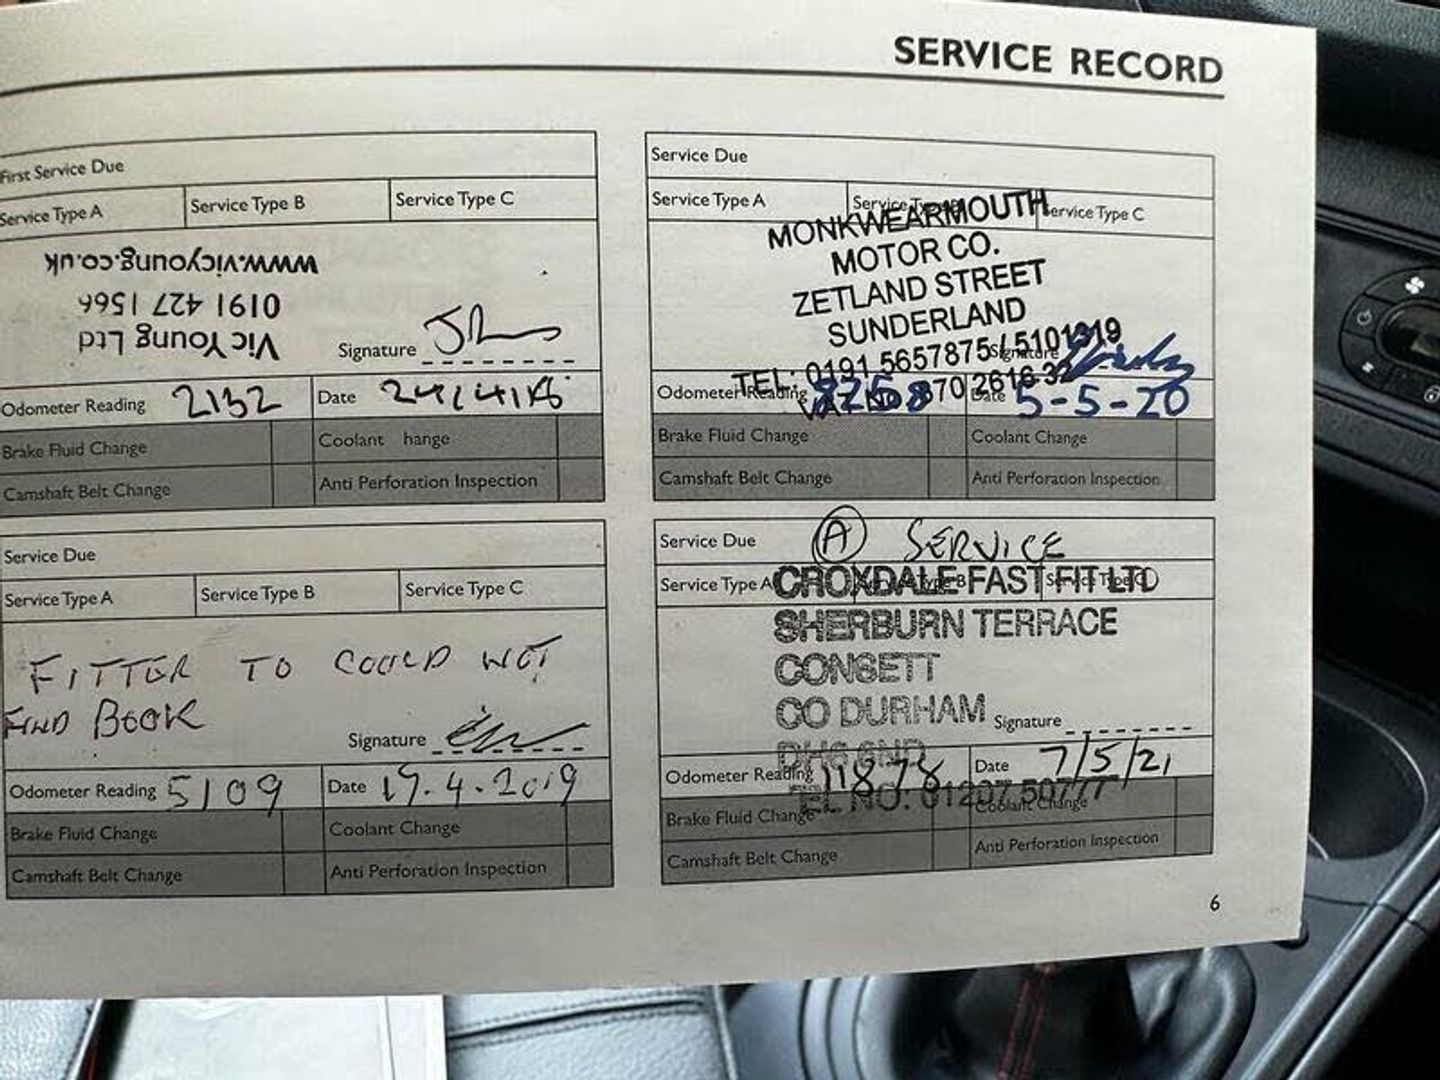 SERVICE RECORD
First Service Due
Service Type A
Service Type B
Service Type C
www.vicyoung.co.uk
0191 427 1566
Vic Young Ltd
Signature
Odometer Reading 2132
Date 24/4/18
Brake Fluid Change
Coolant hange
Camshaft Belt Change
Anti Perforation Inspection
Service Due
Service Type A
Service Type C
MONKWEARMOUTH
MOTOR CO.
ZETLAND STREET
SUNDERLAND
TEL: 0191 5657875 / 5101319
Signature
Odometer Reading
Date 5-5-20
Brake Fluid Change
Coolant Change
Camshaft Belt Change
Anti Perforation Inspection
Service Due
Service Type A
Service Type B
Service Type C
FITTER TO COULD NOT
FIND BOOK
Signature
Odometer Reading 5109
Date 19.4.2019
Brake Fluid Change
Coolant Change
Camshaft Belt Change
Anti Perforation Inspection
Service Due
A SERVICE
Service Type A
CROXDALE FAST FIT LTD
SHERBURN TERRACE
CONSETT
CO DURHAM
Signature
Odometer Reading 11878
Date 7/5/21
TEL NO: 01207 50777
Brake Fluid Change
Coolant Change
Camshaft Belt Change
Anti Perforation Inspection
6